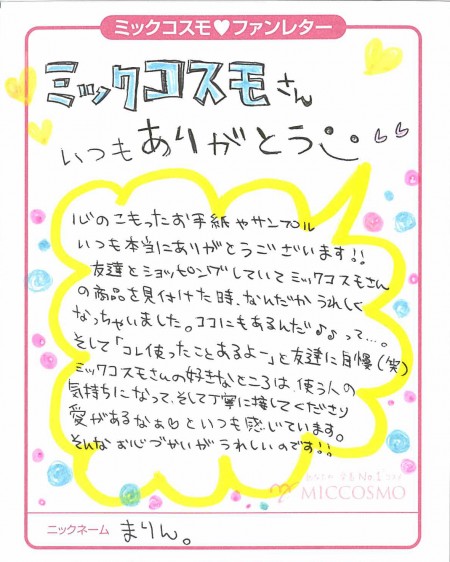 ミックコスモ♥ファンレター
ミックコスモさん
いつもありがとう
心のこもったお手紙やサンプル
いつも本当にありがとうございます!!
友達とショッピングしていてミックコスモさん
の商品を見付けた時、なんだかうれしく
なっちゃいました。ココにもあるんだ♪♪って…。
そして「コレ使ったことあるよー」と友達に自慢(笑)
ミックコスモさんの好きなところは、使う人の
気持ちになって、そして丁寧に接してくださり
愛があるなぁ♡といつも感じています。
そんなお心づかいがうれしいのです!!
No.1
MICCOSMO
ニックネーム まりん。